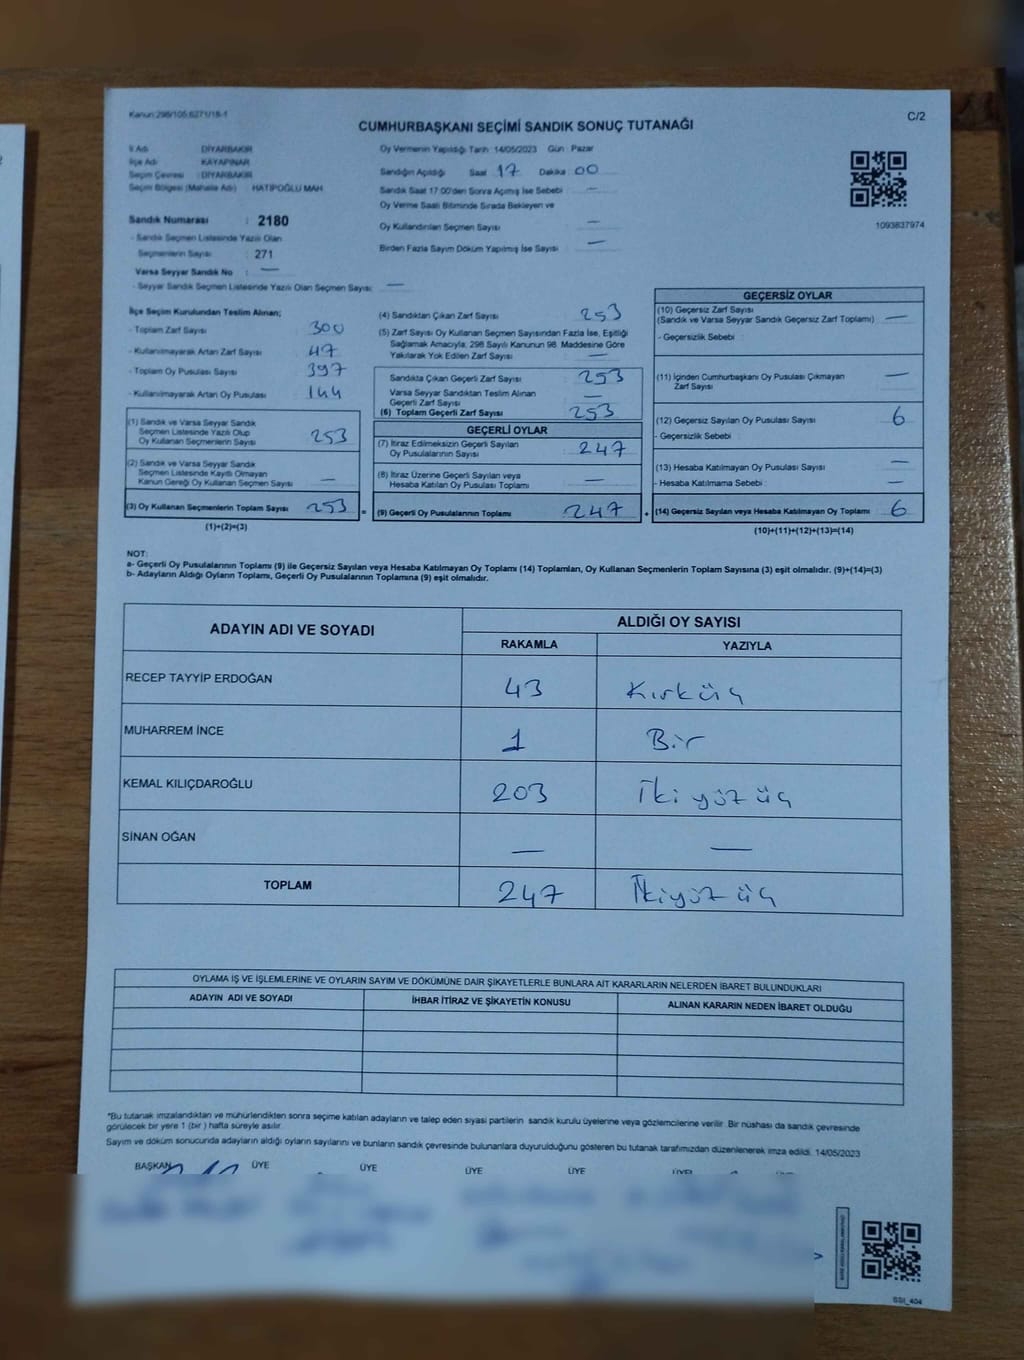 Kanun:298/105,6271/18-1
C/2
CUMHURBAŞKANI SEÇİMİ SANDIK SONUÇ TUTANAĞI
İl Adı : DİYARBAKIR
İlçe Adı : KAYAPINAR
Seçim Çevresi : DİYARBAKIR
Seçim Bölgesi (Mahalle Adı) : HATİPOĞLU MAH.
Sandık Numarası : 2180
- Sandık Seçmen Listesinde Yazılı Olan
Seçmenlerin Sayısı : 271
Varsa Seyyar Sandık No : —
- Seyyar Sandık Seçmen Listesinde Yazılı Olan Seçmen Sayısı: —
Oy Vermenin Yapıldığı Tarih :14/05/2023 Gün : Pazar
Sandığın Açıldığı Saat : 17 Dakika : 00
Sandık Saat 17:00'den Sonra Açılmış İse Sebebi : —
Oy Verme Saati Bitiminde Sırada Bekleyen ve
Oy Kullandırılan Seçmen Sayısı : —
Birden Fazla Sayım Döküm Yapılmış İse Sayısı : —
1093837974
İlçe Seçim Kurulundan Teslim Alınan;
- Toplam Zarf Sayısı : 300
- Kullanılmayarak Artan Zarf Sayısı : 47
- Toplam Oy Pusulası Sayısı : 397
- Kullanılmayarak Artan Oy Pusulası : 144
(1) Sandık ve Varsa Seyyar Sandık
Seçmen Listesinde Yazılı Olup
Oy Kullanan Seçmenlerin Sayısı : 253
(2) Sandık ve Varsa Seyyar Sandık
Seçmen Listesinde Kayıtlı Olmayan
Kanun Gereği Oy Kullanan Seçmen Sayısı : —
(3) Oy Kullanan Seçmenlerin Toplam Sayısı : 253
(1)+(2)=(3)
(4) Sandıktan Çıkan Zarf Sayısı : 253
(5) Zarf Sayısı Oy Kullanan Seçmen Sayısından Fazla İse, Eşitliği
Sağlamak Amacıyla; 298 Sayılı Kanunun 98. Maddesine Göre
Yakılarak Yok Edilen Zarf Sayısı : —
Sandıkta Çıkan Geçerli Zarf Sayısı : 253
Varsa Seyyar Sandıktan Teslim Alınan
Geçerli Zarf Sayısı : —
(6) Toplam Geçerli Zarf Sayısı : 253
GEÇERLİ OYLAR
(7) İtiraz Edilmeksizin Geçerli Sayılan
Oy Pusulalarının Sayısı : 247
(8) İtiraz Üzerine Geçerli Sayılan veya
Hesaba Katılan Oy Pusulası Toplamı : —
= (9) Geçerli Oy Pusulalarının Toplamı : 247
GEÇERSİZ OYLAR
(10) Geçersiz Zarf Sayısı :
(Sandık ve Varsa Seyyar Sandık Geçersiz Zarf Toplamı) —
- Geçersizlik Sebebi :
(11) İçinden Cumhurbaşkanı Oy Pusulası Çıkmayan
Zarf Sayısı : —
(12) Geçersiz Sayılan Oy Pusulası Sayısı : 6
- Geçersizlik Sebebi :
(13) Hesaba Katılmayan Oy Pusulası Sayısı : —
- Hesaba Katılmama Sebebi : —
+ (14) Geçersiz Sayılan veya Hesaba Katılmayan Oy Toplamı : 6
(10)+(11)+(12)+(13)=(14)
NOT:
a- Geçerli Oy Pusulalarının Toplamı (9) ile Geçersiz Sayılan veya Hesaba Katılmayan Oy Toplamı (14) Toplamları, Oy Kullanan Seçmenlerin Toplam Sayısına (3) eşit olmalıdır. (9)+(14)=(3)
b- Adayların Aldığı Oyların Toplamı, Geçerli Oy Pusulalarının Toplamına (9) eşit olmalıdır.
ADAYIN ADI VE SOYADI
ALDIĞI OY SAYISI
RAKAMLA YAZIYLA
RECEP TAYYİP ERDOĞAN 43 Kırküç
MUHARREM İNCE 1 Bir
KEMAL KILIÇDAROĞLU 203 İkiyüzüç
SİNAN OĞAN — —
TOPLAM 247 İkiyüzüç
OYLAMA İŞ VE İŞLEMLERİNE VE OYLARIN SAYIM VE DÖKÜMÜNE DAİR ŞİKAYETLERLE BUNLARA AİT KARARLARIN NELERDEN İBARET BULUNDUKLARI
ADAYIN ADI VE SOYADI İHBAR İTİRAZ VE ŞİKAYETİN KONUSU ALINAN KARARIN NEDEN İBARET OLDUĞU
*Bu tutanak imzalandıktan ve mühürlendikten sonra seçime katılan adayların ve talep eden siyasi partilerin sandık kurulu üyelerine veya gözlemcilerine verilir. Bir nüshası da sandık çevresinde
görülecek bir yere 1 (bir ) hafta süreyle asılır.
Sayım ve döküm sonucunda adayların aldığı oyların sayılarını ve bunların sandık çevresinde bulunanlara duyurulduğunu gösteren bu tutanak tarafımızdan düzenlenerek imza edildi. 14/05/2023
BAŞKAN ÜYE ÜYE ÜYE ÜYE ÜYE ÜYE
SSI_404